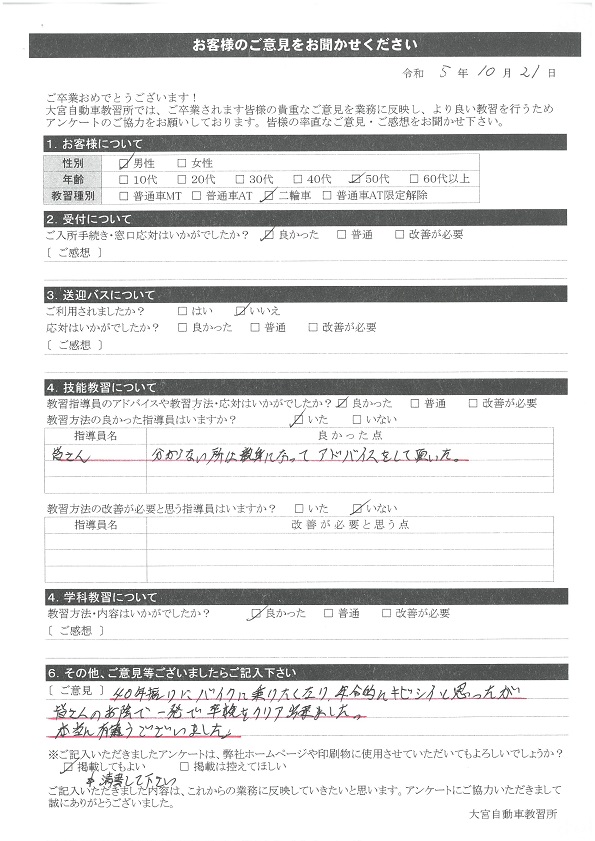 お客様のご意見をお聞かせください
令和 5 年 10 月 21 日
ご卒業おめでとうございます！
大宮自動車教習所では、ご卒業されます皆様の貴重なご意見を業務に反映し、より良い教習を行うため
アンケートのご協力をお願いしております。皆様の率直なご意見・ご感想をお聞かせ下さい。
1. お客様について
性別 ☑男性 □女性
年齢 □10代 □20代 □30代 □40代 ☑50代 □60代以上
教習種別 □普通車MT □普通車AT ☑二輪車 □普通車AT限定解除
2. 受付について
ご入所手続き・窓口応対はいかがでしたか？ ☑良かった □普通 □改善が必要
[ ご感想 ]
3. 送迎バスについて
ご利用されましたか？ □はい ☑いいえ
応対はいかがでしたか？ □良かった □普通 □改善が必要
[ ご感想 ]
4. 技能教習について
教習指導員のアドバイスや教習方法・応対はいかがでしたか？ ☑良かった □普通 □改善が必要
教習方法の良かった指導員はいますか？ ☑いた □いない
指導員名 良かった点
皆さん 分からない所は親身になって アドバイスをして頂いた。
教習方法の改善が必要と思う指導員はいますか？ □いた ☑いない
指導員名 改善が必要と思う点
4. 学科教習について
教習方法・内容はいかがでしたか？ ☑良かった □普通 □改善が必要
[ ご感想 ]
6. その他、ご意見等ございましたらご記入下さい
[ ご意見 ] 40年振りにバイクに乗りたくなり 年令的にキビシイと思ったが
皆さんのお陰で一発で卒検をクリア出来ました。
本当に有難うございました。
※ご記入いただきましたアンケートは、弊社ホームページや印刷物に使用させていただいてもよろしいでしょうか？
☑掲載してもよい □掲載は控えてほしい
して下さい
ご記入いただきました内容は、これからの業務に反映していきたいと思います。アンケートにご協力いただきまして
誠にありがとうございました。
大宮自動車教習所